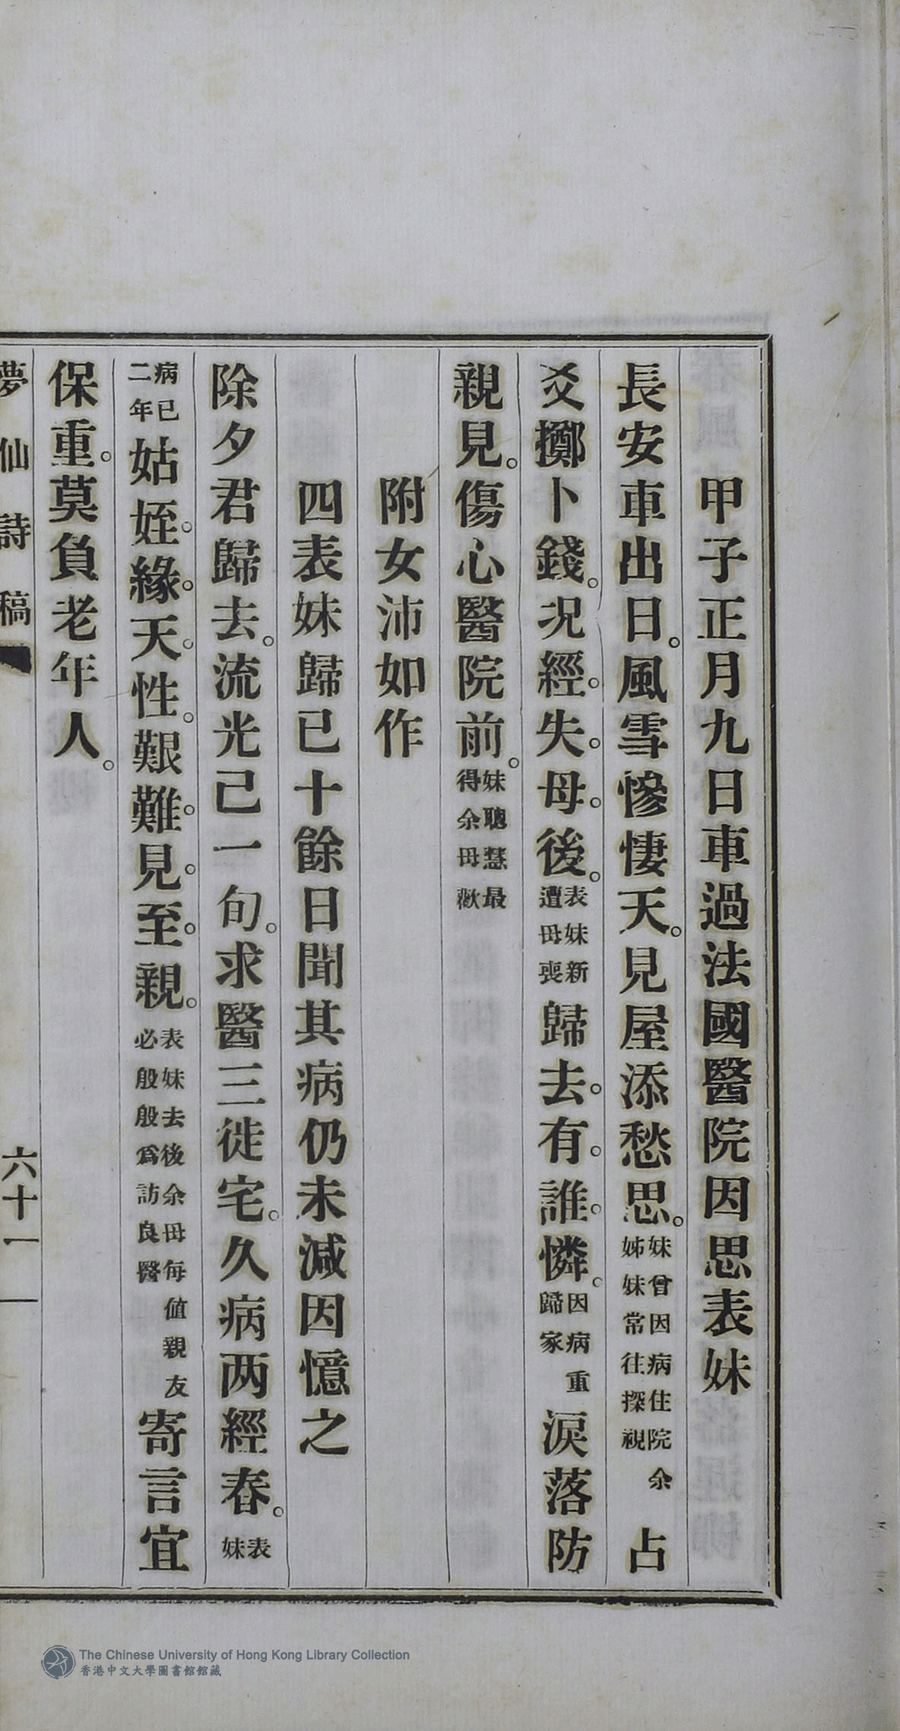 甲子正月九日車過法國醫院因思表妹
長安車出日。風雪慘悽天。見屋添愁思。妹曾因病住院余姊妹常往探視占
爻擲卜錢。况經。失。母。後。表妹新遭母喪歸去。有。誰。憐。因病重歸家淚落防
親見。傷心醫院前。妹聰慧最得余母歡
附女沛如作
四表妹歸已十餘日聞其病仍未減因憶之
除夕君歸去。流光已一旬。求醫三徙宅。久病兩經春。表妹
病已二年姑姪。緣。天。性。艱難。見。至。親。表妹去後余母每值親友必殷殷為訪良醫寄言宜
保重。莫負老年人。
夢仙詩稿
六十一
The Chinese University of Hong Kong Library Collection
香港中文大學圖書館館藏